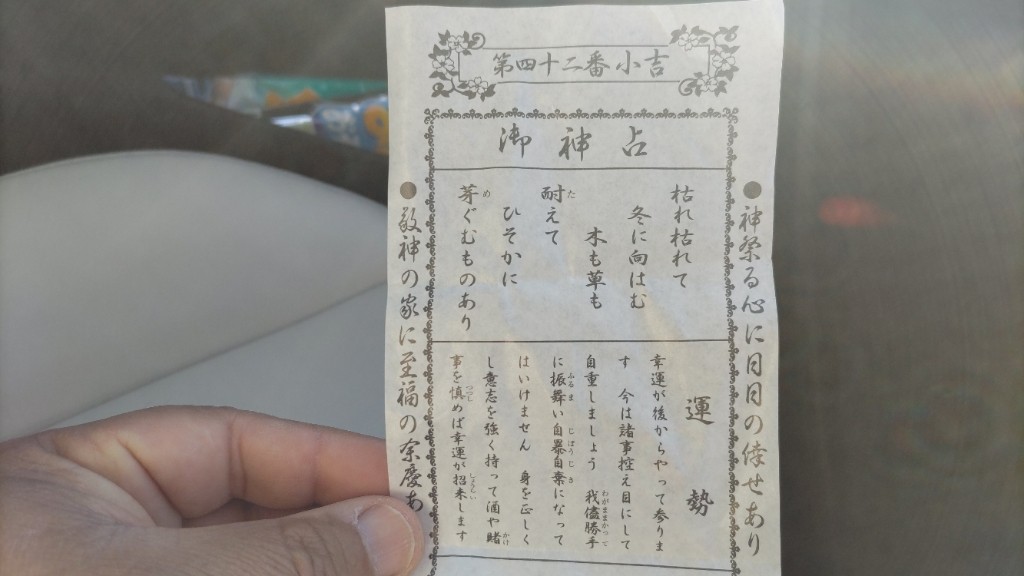 第四十二番 小吉
御神占
●神祭る心に日日の倖せあり
枯れ枯れて
冬に向はむ
木も草も
耐えて
ひそかに
芽ぐむものあり
運勢
幸運が後からやって参りま
す 今は諸事控え目にして
自重しましょう 我儘勝手
に振舞い自暴自棄になって
はいけません 身を正しく
し意志を強く持って酒や賭
事を慎めば幸運が招来します
●敬神の家に至福の余慶あ